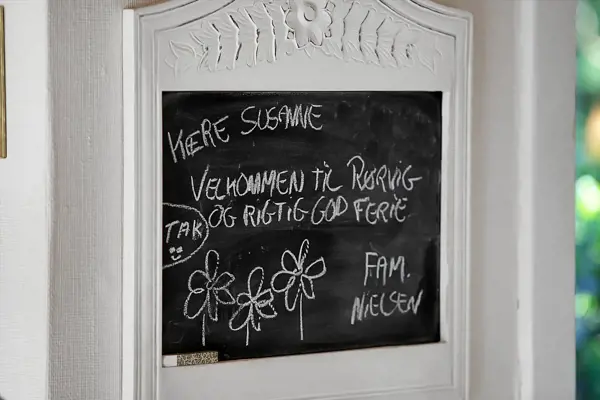 KÆRE SUSANNE
VELKOMMEN TIL RØRVIG
OG RIGTIG GOD FERIE
TAK
FAM.
NIELSEN